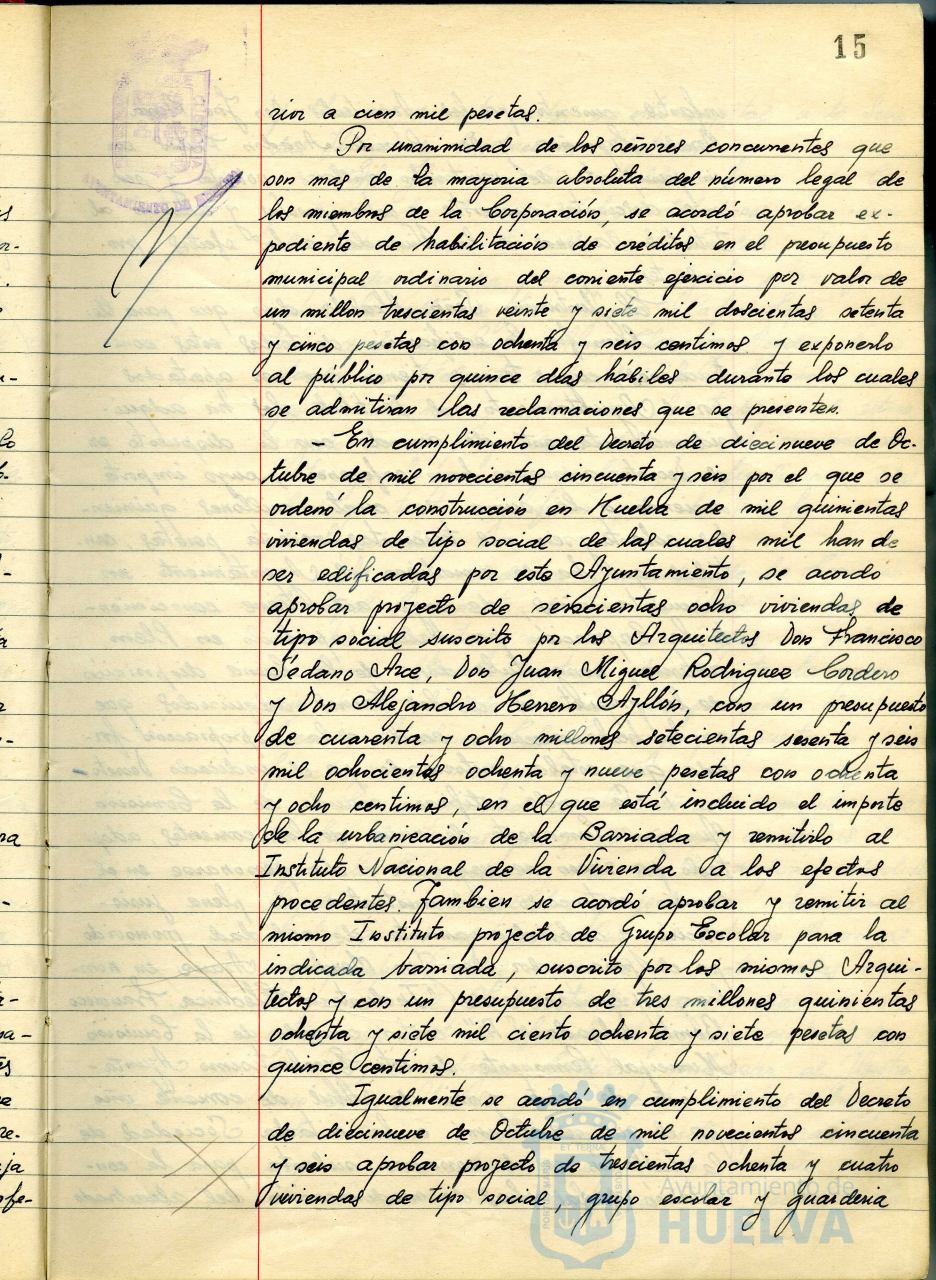 15
rior a cien mil pesetas.
Por unanimidad de los señores concurrentes que
son mas de la mayoria absoluta del número legal de
los miembros de la Corporación, se acordó aprobar ex-
pediente de habilitación de créditos en el presupuesto
municipal ordinario del corriente ejercicio por valor de
un millon trescientas veinte y siete mil doscientas setenta
y cinco pesetas con ochenta y seis centimos y exponerlo
al público por quince dias hábiles durante los cuales
se admitiran las reclamaciones que se presenten.
- En cumplimiento del Decreto de diecinueve de Oc-
tubre de mil novecientos cincuenta y seis por el que se
ordenó la construcción en Huelva de mil quinientas
viviendas de tipo social de las cuales mil han de
ser edificadas por este Ayuntamiento, se acordo
aprobar projecto de seiscientas ocho viviendas de
tipo social suscrito por los Arquitectos Don Francisco
Sedano Arce, Don Juan Miguel Rodriguez Cordero
y Don Alejandro Herrero Ayllón, con un presupuesto
de cuarenta y ocho millones setecientas sesenta y seis
mil ochocientas ochenta y nueve pesetas con ochenta
y ocho centimos, en el que está incluido el importe
de la urbanización de la Barriada y remitirlo al
Instituto Nacional de la Vivienda a los efectos
procedentes. Tambien se acordó aprobar y remitir al
mismo Instituto projecto de Grupo Escolar para la
indicada barriada, suscrito por los mismos Arqui-
tectos y con un presupuesto de tres millones quinientas
ochenta y siete mil ciento ochenta y siete pesetas con
quince centimos.
Igualmente se acordó en cumplimiento del Decreto
de diecinueve de Octubre de mil novecientos cincuenta
y seis aprobar projecto de trescientas ochenta y cuatro
viviendas de tipo social, grupo escolar y guarderia
Ayuntamiento de
HUELVA